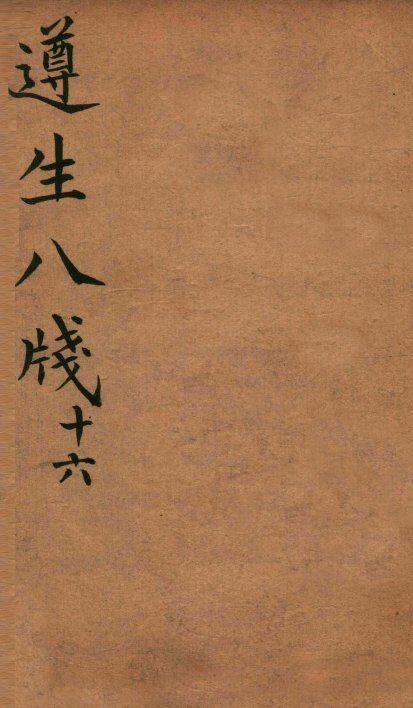 遵生八牋十六